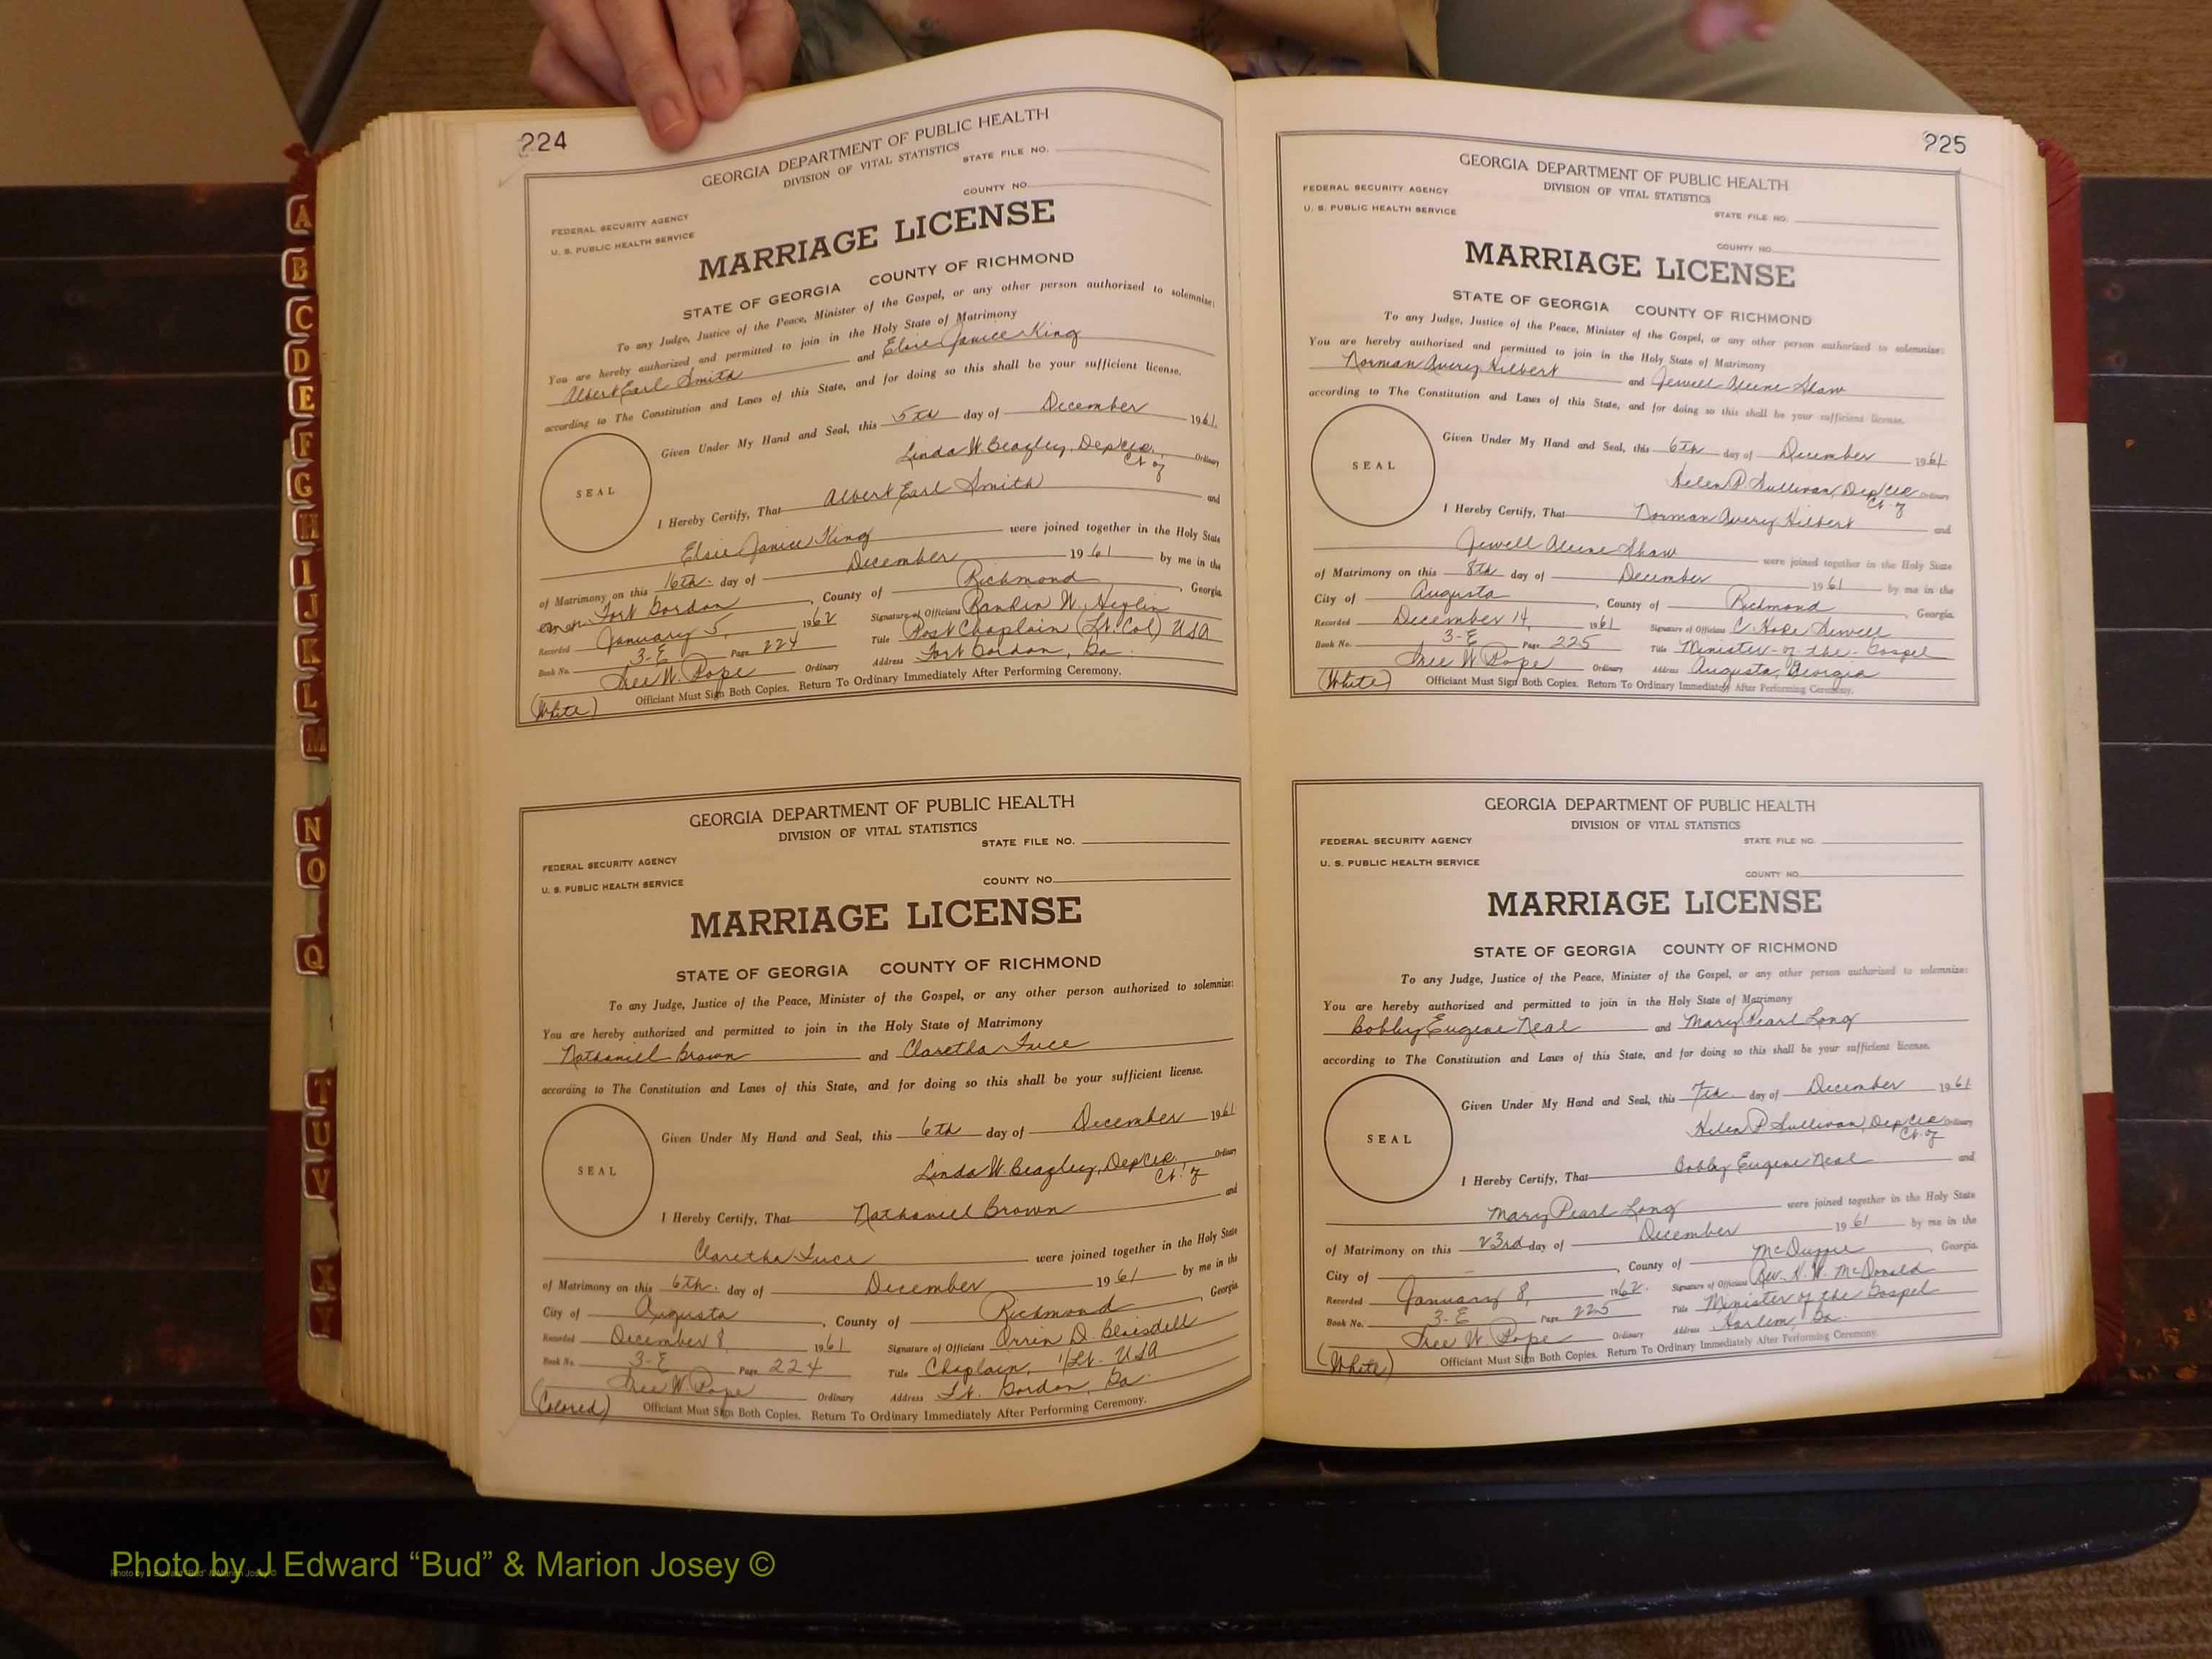 224
GEORGIA DEPARTMENT OF PUBLIC HEALTH
DIVISION OF VITAL STATISTICS
STATE FILE NO.
COUNTY NO.
FEDERAL SECURITY AGENCY
U. S. PUBLIC HEALTH SERVICE
MARRIAGE LICENSE
STATE OF GEORGIA COUNTY OF RICHMOND
To any Judge, Justice of the Peace, Minister of the Gospel, or any other person authorized to solemnize:
You are hereby authorized and permitted to join in the Holy State of Matrimony
Albert Earl Smith and Elsie Janice King
according to The Constitution and Laws of this State, and for doing so this shall be your sufficient license.
Given Under My Hand and Seal, this 5th day of December 1961
Linda W. Beazley, Dep Clk. Ordinary
Ct. of
SEAL
I Hereby Certify, That Albert Earl Smith and
Elsie Janice King were joined together in the Holy State
of Matrimony on this 16th. day of December 1961 by me in the
Fort Gordon, County of Richmond, Georgia.
Recorded January 5, 1962 Signature of Officiant
Book No. 3-E Page 224 Title Post Chaplain (Lt. Col) USA
Tree W. Pope Ordinary Address Fort Gordon, Ga.
(White) Officiant Must Sign Both Copies. Return To Ordinary Immediately After Performing Ceremony.
GEORGIA DEPARTMENT OF PUBLIC HEALTH
DIVISION OF VITAL STATISTICS
STATE FILE NO.
FEDERAL SECURITY AGENCY
U. S. PUBLIC HEALTH SERVICE
COUNTY NO.
MARRIAGE LICENSE
STATE OF GEORGIA COUNTY OF RICHMOND
To any Judge, Justice of the Peace, Minister of the Gospel, or any other person authorized to solemnize:
You are hereby authorized and permitted to join in the Holy State of Matrimony
Nathaniel Brown and Claretha Luce
according to The Constitution and Laws of this State, and for doing so this shall be your sufficient license.
Given Under My Hand and Seal, this 6th day of December 1961
Linda W. Beazley, Dep Clk. Ordinary
Ct. of
SEAL
I Hereby Certify, That Nathaniel Brown and
Claretha Luce were joined together in the Holy State
of Matrimony on this 6th. day of December 1961 by me in the
City of Augusta, County of Richmond, Georgia
Recorded December 8, 1961 Signature of Officiant Orrin D. Blaisdell
Book No. 3-E Page 224 Title Chaplain, 1/Lt. USA
Tree W. Pope Ordinary Address Ft. Gordon, Ga.
(Colored) Officiant Must Sign Both Copies. Return To Ordinary Immediately After Performing Ceremony.
225
GEORGIA DEPARTMENT OF PUBLIC HEALTH
DIVISION OF VITAL STATISTICS
FEDERAL SECURITY AGENCY
U. S. PUBLIC HEALTH SERVICE
STATE FILE NO.
COUNTY NO.
MARRIAGE LICENSE
STATE OF GEORGIA COUNTY OF RICHMOND
To any Judge, Justice of the Peace, Minister of the Gospel, or any other person authorized to solemnize:
You are hereby authorized and permitted to join in the Holy State of Matrimony
Norman Avery Hilbert and Jewell Aleene Shaw
according to The Constitution and Laws of this State, and for doing so this shall be your sufficient license.
Given Under My Hand and Seal, this 6th day of December 1961
Helen P. Sullivan, Dep Clk Ordinary
Ct. of
SEAL
I Hereby Certify, That Norman Avery Hilbert and
Jewell Aleene Shaw were joined together in the Holy State
of Matrimony on this 8th day of December 1961 by me in the
City of Augusta, County of Richmond, Georgia.
Recorded December 14, 1961 Signature of Officiant C. Hoke Sewell
Book No. 3-E Page 225 Title Minister-of-the-Gospel
Tree W. Pope Ordinary Address Augusta, Georgia
(White) Officiant Must Sign Both Copies. Return To Ordinary Immediately After Performing Ceremony.
GEORGIA DEPARTMENT OF PUBLIC HEALTH
DIVISION OF VITAL STATISTICS
FEDERAL SECURITY AGENCY
STATE FILE NO.
U. S. PUBLIC HEALTH SERVICE
COUNTY NO.
MARRIAGE LICENSE
STATE OF GEORGIA COUNTY OF RICHMOND
To any Judge, Justice of the Peace, Minister of the Gospel, or any other person authorized to solemnize:
You are hereby authorized and permitted to join in the Holy State of Matrimony
Bobby Eugene Neal and Mary Pearl Long
according to The Constitution and Laws of this State, and for doing so this shall be your sufficient license.
Given Under My Hand and Seal, this 7th. day of December 1961
Helen P. Sullivan, Dep Clk Ordinary
Ct. of
SEAL
I Hereby Certify, That Bobby Eugene Neal and
Mary Pearl Long were joined together in the Holy State
of Matrimony on this 23rd day of December 1961 by me in the
City of , County of McDuffie, Georgia.
Recorded January 8, 1962. Signature of Officiant Rev. H. W. McDonald
Book No. 3-E Page 225 Title Minister of the Gospel
Tree W. Pope Ordinary Address Harlem, Ga.
(White) Officiant Must Sign Both Copies. Return To Ordinary Immediately After Performing Ceremony.
A
B
C
D
E
F
G
H
I
J
K
L
M
N
O
Q
T
U
V
X
Y
Photo by J Edward “Bud” & Marion Josey ©
Photo by J Edward “Bud” & Marion Josey ©